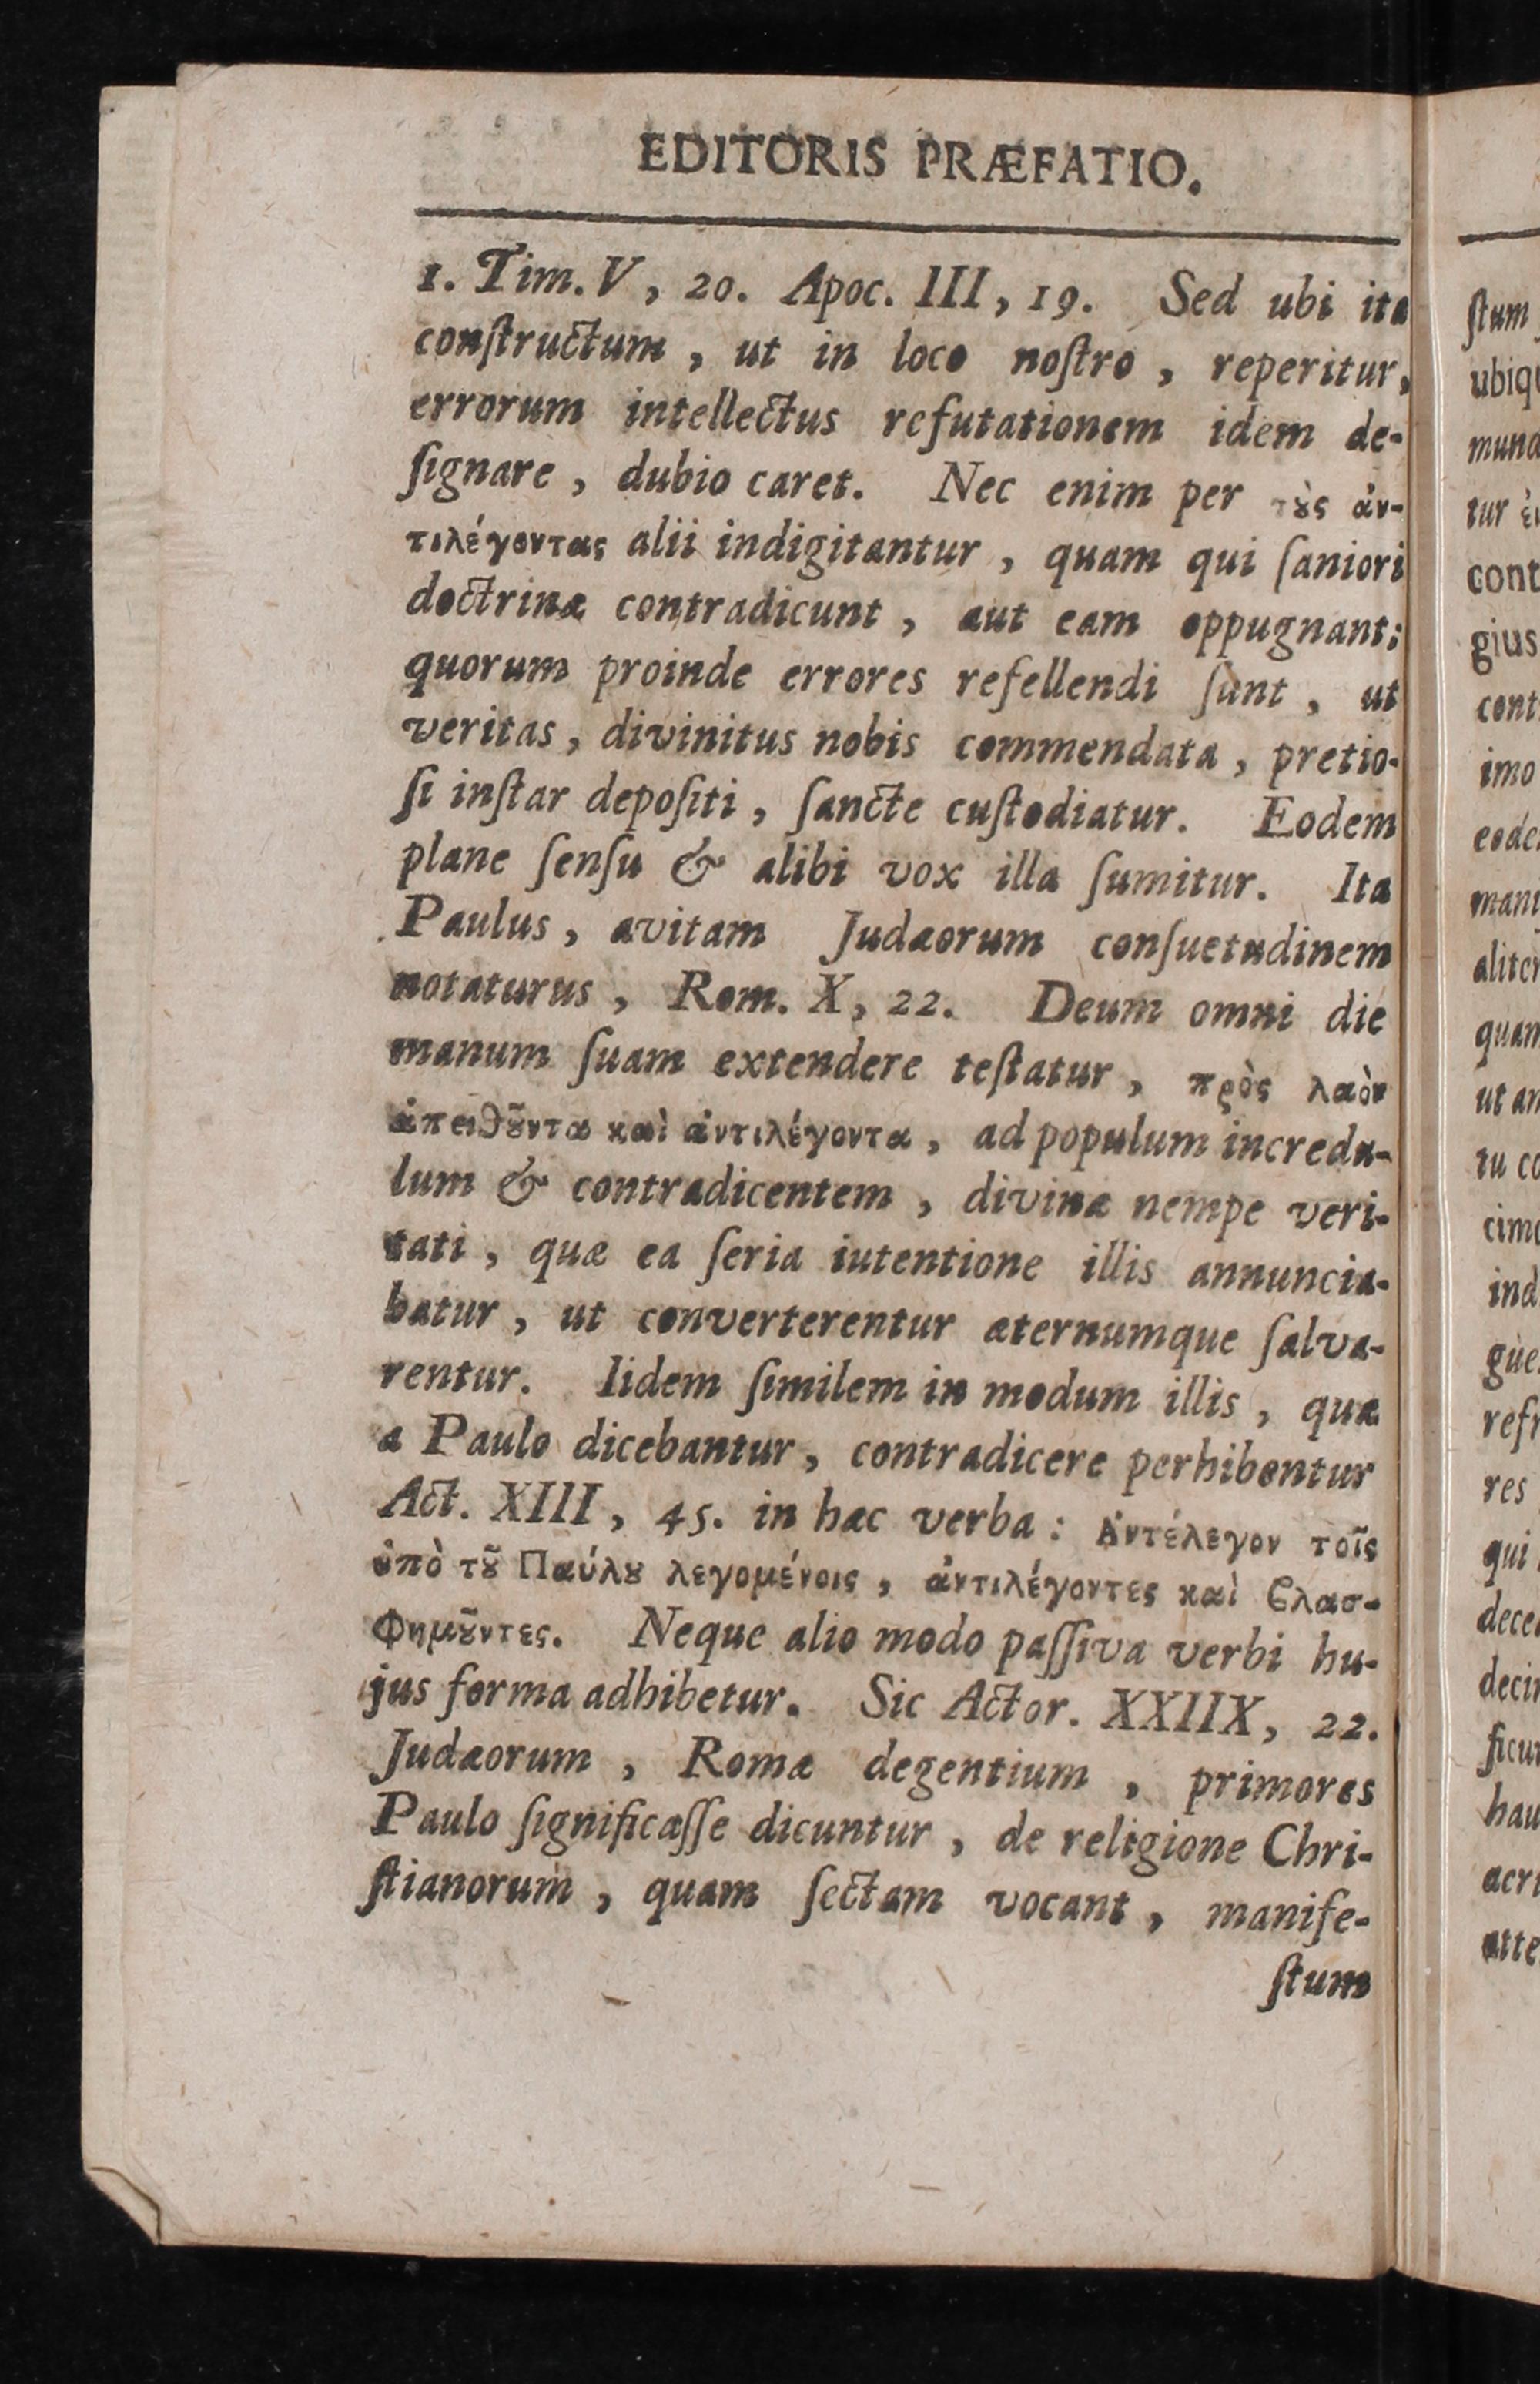 EDITORIS PRÆFATIO.
1. Tim. V, 20. Apoc. III, 19. Sed ubi ita
conſtructum, ut in loco noſtro, reperitur,
errorum intellectus refutationem idem de-
ſignare, dubio caret. Nec enim per τȣ̀ς ἀν-
τιλέγοντας alii indigitantur, quam qui ſaniori
doctrinæ contradicunt, aut eam oppugnant;
quorum proinde errores refellendi ſunt, ut
veritas, divinitus nobis commendata, pretio-
ſi inſtar depoſiti, ſancte cuſtodiatur. Eodem
plane ſenſu & alibi vox illa ſumitur. Ita
Paulus, avitam Judæorum conſuetudinem
notaturus, Rom. X, 22. Deum omni die
manum ſuam extendere teſtatur, πρὸς λαὸν
ἀπειθȣ͂ντα καὶ ἀντιλέγοντα, ad populum incredu-
lum & contradicentem, divinæ nempe veri-
tati, quæ ea ſeria iutentione illis annuncia-
batur, ut converterentur æternumque ſalva-
rentur. Iidem ſimilem in modum illis, quæ
a Paulo dicebantur, contradicere perhibentur
Act. XIII, 45. in hæc verba: Ἀντέλεγον τοῖς
ὑπὸ τȣ͂ Παύλȣ λεγομένοις, ἀντιλέγοντες καὶ ϐλασ-
φημȣ͂ντες. Neque alio modo paſſiva verbi hu-
jus forma adhibetur. Sic Actor. XXIIX, 22.
Judæorum, Romæ degentium, primores
Paulo ſignificaſſe dicuntur, de religione Chri-
ſtianorum, quam ſectam vocant, manife-
ſtum
ſtum
ubiq
mund
tur
cont
gius
cont
imo
eode
mani
aliter
quam
ut an
tu co
cim
ind
gue
refr
res
qui
dece
decir
ficu
hau
acri
atte